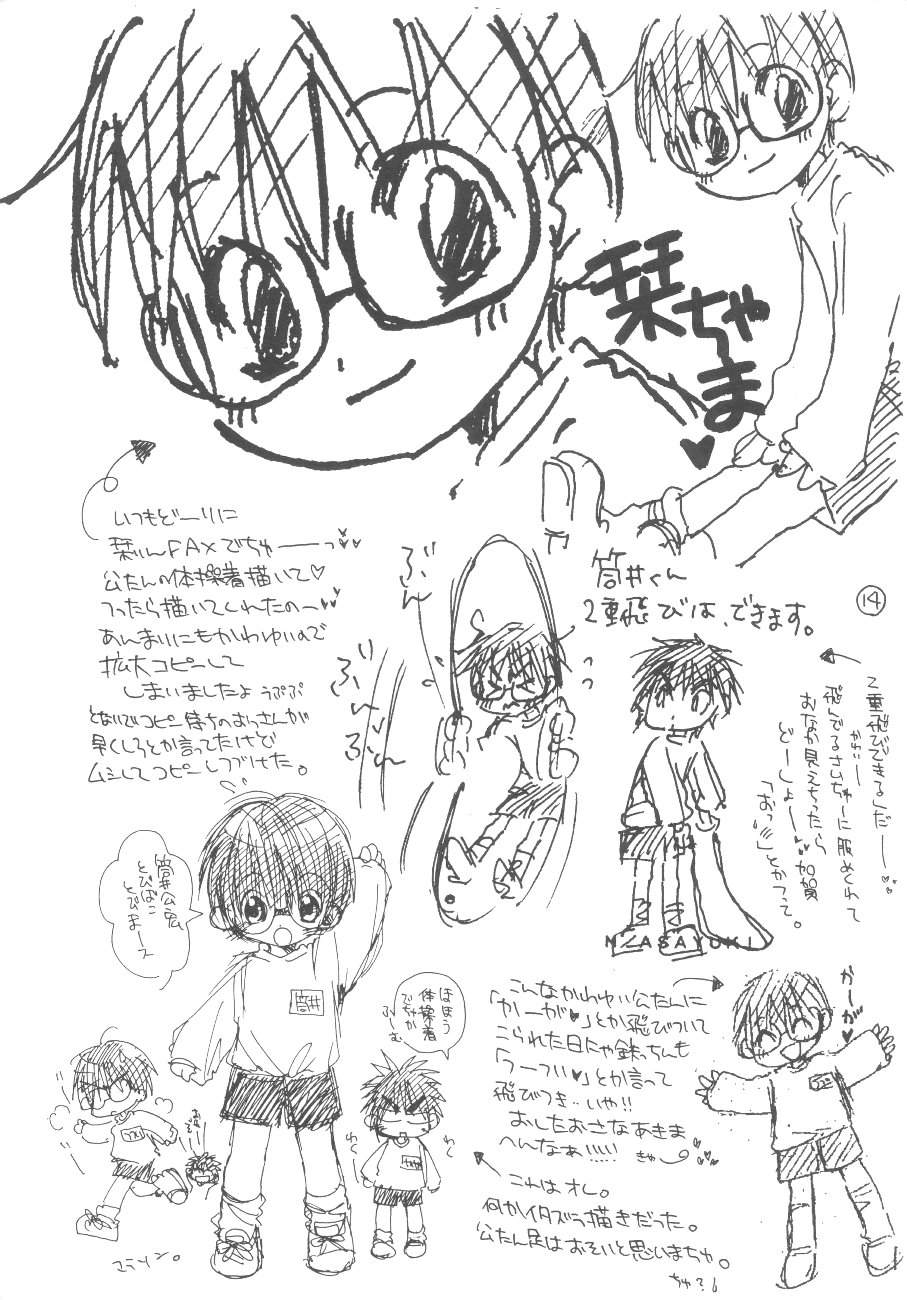 栞ちゃま♥
いつもどーりに
栞りんFAXでちゅーーっ♥♥
公たんの体操着描いて♡
つったら描いてくれたのー♥♥
あんまいにもかわゆいので
拡大コピーして
しまいましたよ うぷぷ
となりでコピー待ちのおっさんが
早くしろとか言ってたけど
ムシしてコピーしつづけた。
ぶんっ
ぶんっ
ぶんっ
筒井くん
2重飛びは、できます。
14
2重飛びできる」だーー♥
飛んでるさいちゅーに服めくれて
かわいー
おなか見えちったら
どーしよーー♥ 加賀
「おっ!!」とかつって。
筒井公宏
とびばこ
とびまース
筒井
ほほう
体操着
でちゅか
ふーむ
わく
わく
マラソン。
こんなかわゆい公たんに
「かーが♥」とか飛びついて
こられた日にゃ鉄っちんも
「つーつい♥」とか言って
飛びつき‥いや!!
おしたおさなあきま
へんなぁ!!!!! きゃー
かーが♥
これはオレ。
何かイタズラ描きだった。
公たん足はおそいと思いまちゅ。
ちゅ？！